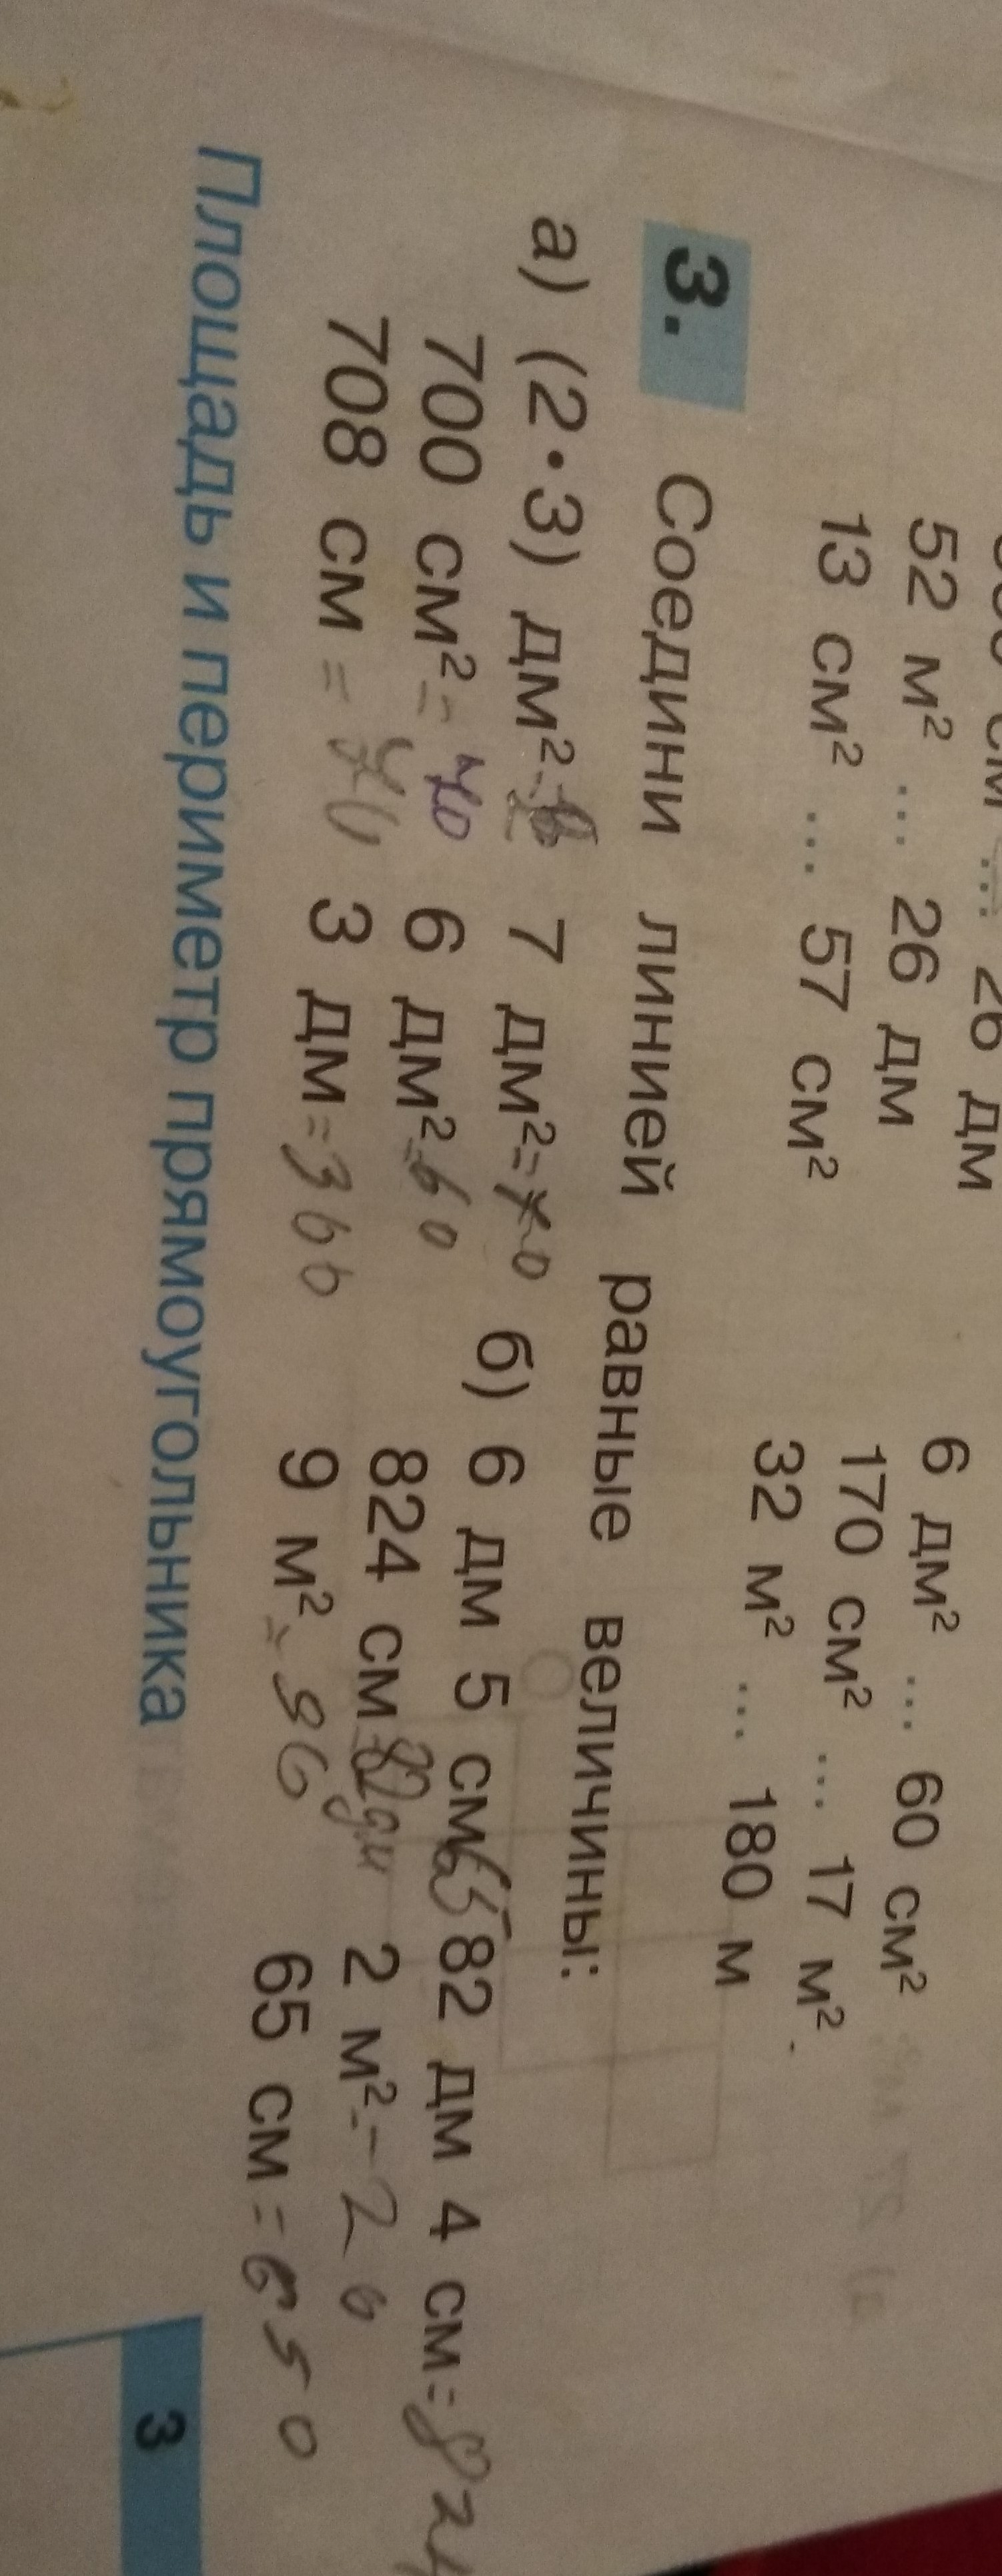 26 дм
52 м² ... 26 дм
13 см² ... 57 см²
6 дм² ... 60 см²
170 см² ... 17 м²
32 м² ... 180 м
3. Соедини линией равные величины:
а) (2•3) дм² 7 дм² = 70
700 см² = 70 6 дм² = 60
708 см = 70 3 дм = 300
б) 6 дм 5 см 65 82 дм 4 см = 824
824 см 82 дм 2 м² = 20
9 м² = 90 65 см = 650
Площадь и периметр прямоугольника
3